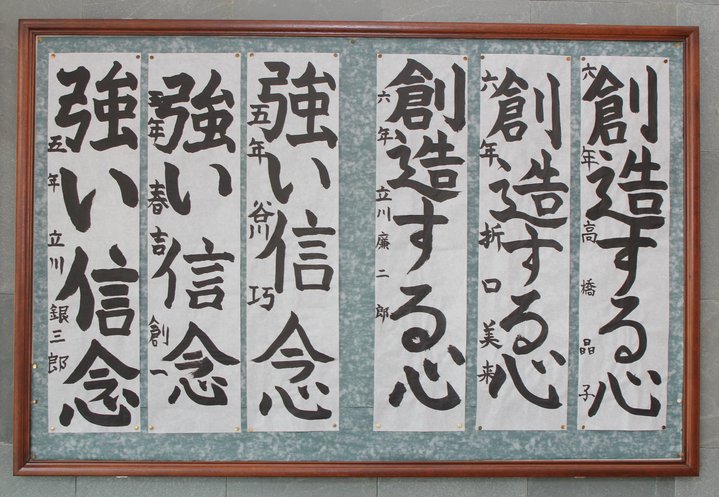 創造する心
六年 高橋晶子
創造する心
六年 折口美来
創造する心
六年 立川廉二郎
強い信念
五年 谷川巧
強い信念
五年 春吉創一
強い信念
五年 立川銀三郎